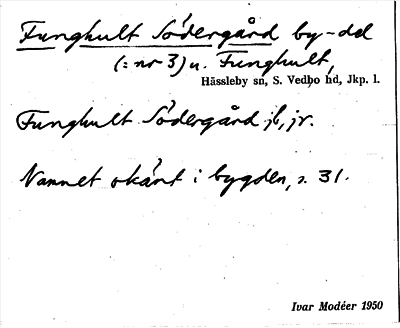 Funghult Södergård by-del
(: nr 3) u. Funghult,
Hässleby sn, S. Vedbo hd, Jkp. l.
Funghult Södergård jb, jr.
Namnet okänt i bygden, s. 31.
Ivar Modéer 1950